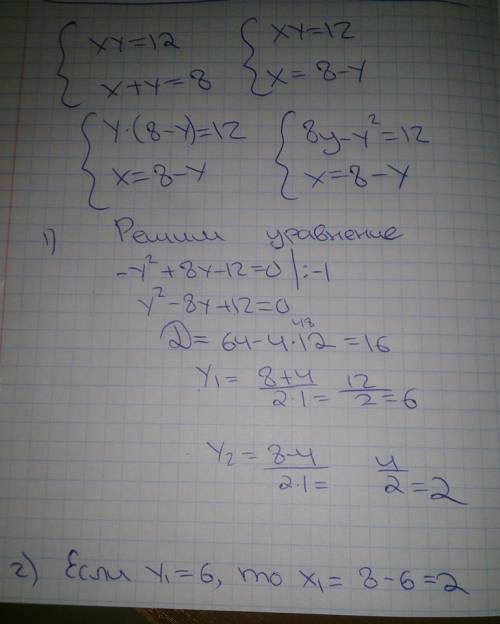 { xy=12   { xy=12
{ x+y=8   { x=8-y
{ y·(8-y)=12   { 8y-y²=12
{ x=8-y   { x=8-y
1) Решим уравнение
-y²+8y-12=0 |:-1
y²-8y+12=0
48
D=64-4·12=16
y₁= 8+4/2·1= 12/2=6
y₂= 8-4/2·1= 4/2=2
2) Если y₁=6, то x₁= 8-6=2